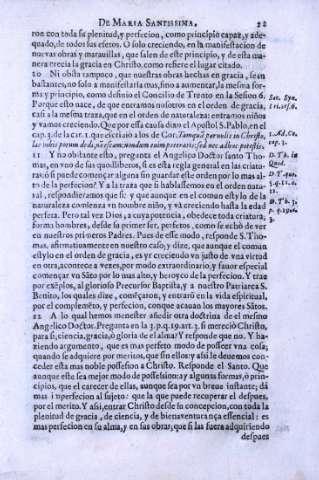 DE MARIA SANTISSIMA. 22
ron con toda su plenitud, y perfecion, como principio capaz, y ade-
quado, de todos sus efetos. O solo creciendo, en la manifestacion de
nuevas obras y marauillas, que salen de este principio, y de esta ma
nera crecia la gracia en Christo, como refiere el lugar citado.
20 Ni obsta tampoco, que nuestras obras hechas en gracia, sean
bastantes, no solo a manifestarla mas, sino a aumentar la mesma for-
ma y principio, como definio el Concilio de Trento en la Session 6.
Porque esto nace, de que entramos nosotros en el orden de gracia,
casi a la mesma traza, que en el orden de naturaleza: entramos niños
y vamos creciendo. Que por essa causa dixo el Apostol S. Pablo, en el
cap. 3. de la car. 1. que escriuio a los de Cor.
11 Y no obstante esto, pregunta el Angelico Doctor santo Tho-
mas, en vno de sus quolibetos, si es esta regla general en las criatu-
ras: ò si puede començar alguna sin guardar este orden por lo mas al-
to de la perfecion? Y a la traza que si hablassemos en el orden natu-
ral, responderiamos que si: y que aunque en el comun estylo de la
naturaleza comiença vn hombre niño, y vâ creciendo hasta la edad
perfeta. Pero tal vez Dios, a cuya potencia, obedece toda criatura;
forma hombres, desde su primer ser, perfetos, como se echò de ver
en nuestros primeros Padres. Pues de esse modo, responde S. Tho-
mas, afirmatiuamente en nuestro caso, y dize, que aunque el comun
estylo en el orden de gracia, es yr creciendo vn justo de vna virtud
en otra, acontece a vezes, por modo extraordinario, y fauor especial
començar vn Sãto por lo mas alto, y heroyco de la perfecion. Y trae
por exẽplos, al glorioso Precursor Baptista, y a nuestro Patriarca S.
Benito, los quales dize, comẽçaron, y entrarõ en la vida espiritual,
por el complemẽto, y perfecion, conque acauan los mayores Sãtos.
22 A lo qual hemos menester añedir otra doctrina de el mesmo
Angelico Doctor. Pregunta en la 3. p. q. 19. art. 3. si mereciò Christo,
para si, ciencia, gracia, ò gloria de el alma? Y responde que no. Y ha-
ziendo argumento, que es mas perfeto modo de posseer vna cosa,
quando se adquiere por meritos, que sin ellos: y assi le deuemos con-
ceder esta mas noble possession a Christo. Responde el Santo. Que
aunque este sea mejor modo de possession: ay algunas formas, ò prin-
cipios, que el carecer de ellas, aunque sea por vn breue instante; dâ
mas imperfecion al sujeto: que la que puede recuperar el despues,
por el merito. Y assi, entrar Christo desde su concepcion, con toda la
plenitud de gracia, de ciencia, y de bienauenturança essencial: es
mas perfecion en su alma, y en sus obras; que si las fuera adquiriendo
despues